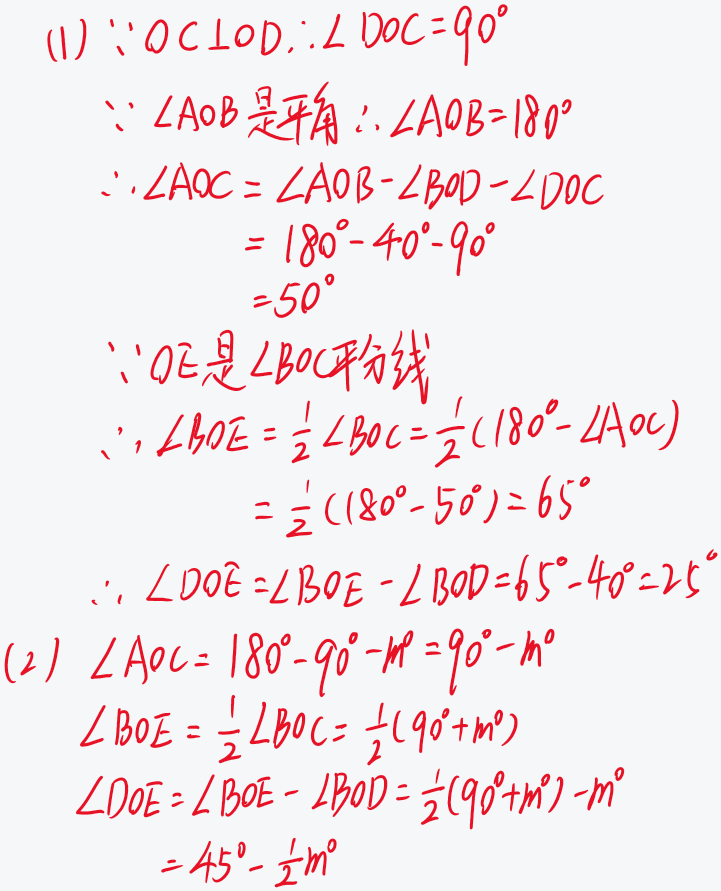 (1) ∵OC⊥OD,∴∠DOC=90°
∵ ∠AOB是平角 ∴∠AOB=180°
∴∠AOC=∠AOB-∠BOD-∠DOC
=180°-40°-90°
=50°
∵OE是∠BOC平分线
∴∠BOE=1/2∠BOC=1/2(180°-∠AOC)
=1/2(180°-50°)=65°
∴∠DOE=∠BOE-∠BOD=65°-40°=25°
(2) ∠AOC=180°-90°-m°=90°-m°
∠BOE=1/2∠BOC=1/2(90°+m°)
∠DOE=∠BOE-∠BOD=1/2(90°+m°)-m°
=45°-1/2m°